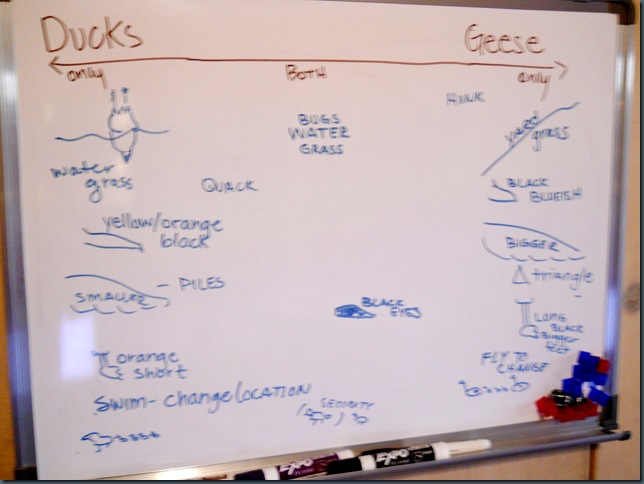 DUCKS
GEESE
only
BOTH
only
HONK
BUGS
WATER
GRASS
yard
grass
water
grass
QUACK
BLACK
BLUEISH
yellow/orange
black
BIGGER
SMALLER
- PILES
triangle
BLACK
EYES
LONG
BLACK
Bigger
feet
orange
short
FLY TO
CHANGE
SWIM - CHANGE LOCATION
SECURITY
EXPO
EXPO